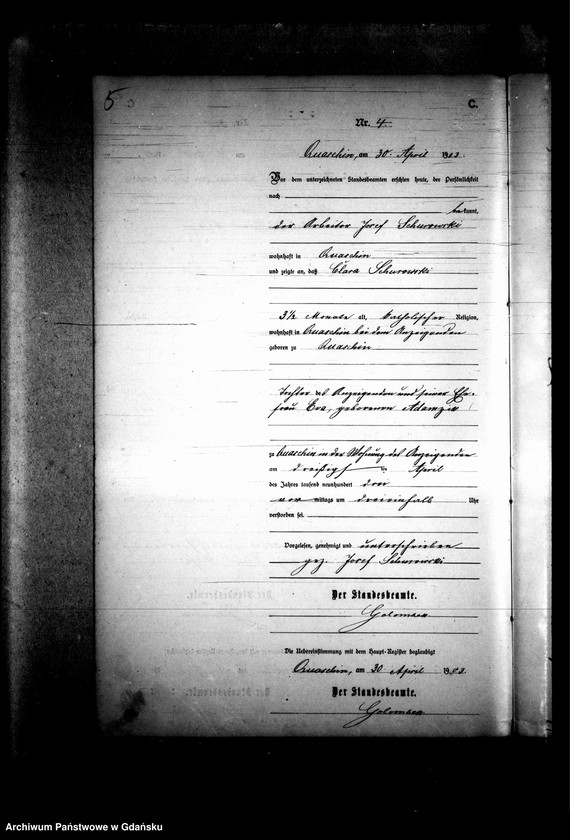 5
C.
Nr. 4
Quaschin, am 30 April 1903.
Vor dem unterzeichneten Standesbeamten erschien heute, der Persönlichkeit
nach
bekannt,
der Arbeiter Josef Schurowski
wohnhaft in Quaschin
und zeigte an, daß Clara Schurowski
3½ Monate alt, katholischer Religion,
wohnhaft in Quaschin bei dem Anzeigenden
geboren zu Quaschin
Tochter des Anzeigenden und seiner Ehe-
frau Eva, geborenen
zu Quaschin in der Wohnung des Anzeigenden
am dreißigsten April
des Jahres tausend neunhundert drei
vor mittags um dreieinhalb Uhr
verstorben sei.
Vorgelesen, genehmigt und unterschrieben
gez. Josef Schurowski
Der Standesbeamte.
Die Uebereinstimmung mit dem Haupt-Register beglaubigt
Quaschin, am 30 April 1903.
Der Standesbeamte.
Archiwum Państwowe w Gdańsku